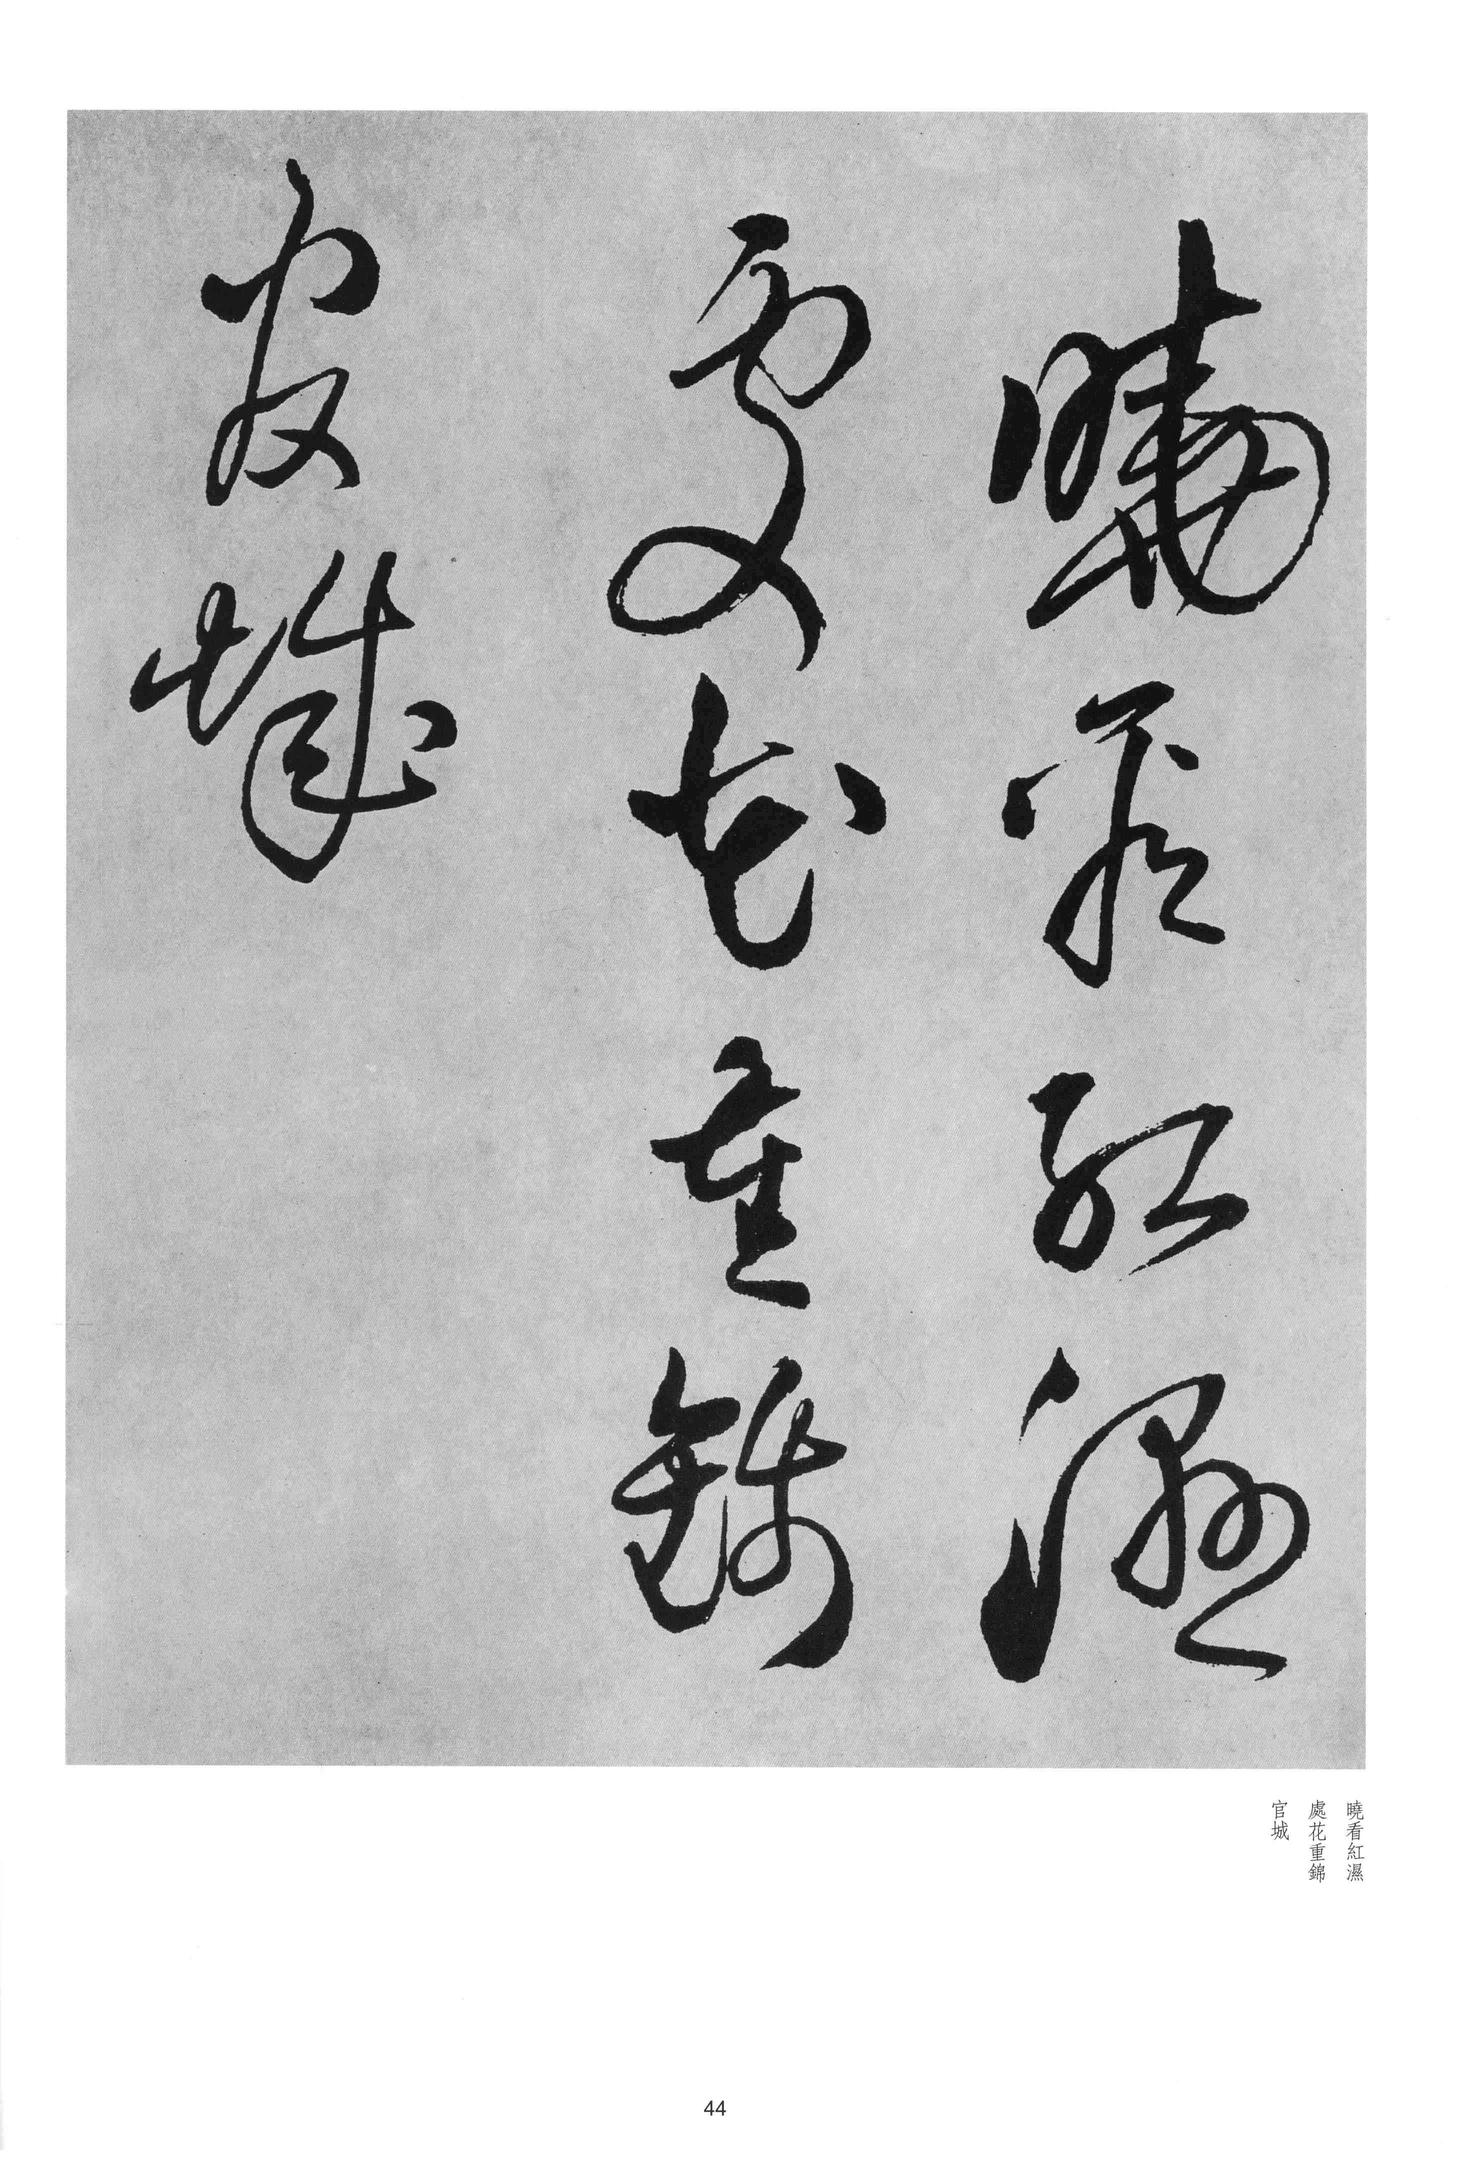 曉看紅濕
處花重錦
官城
曉看紅濕
處花重錦
官城
44